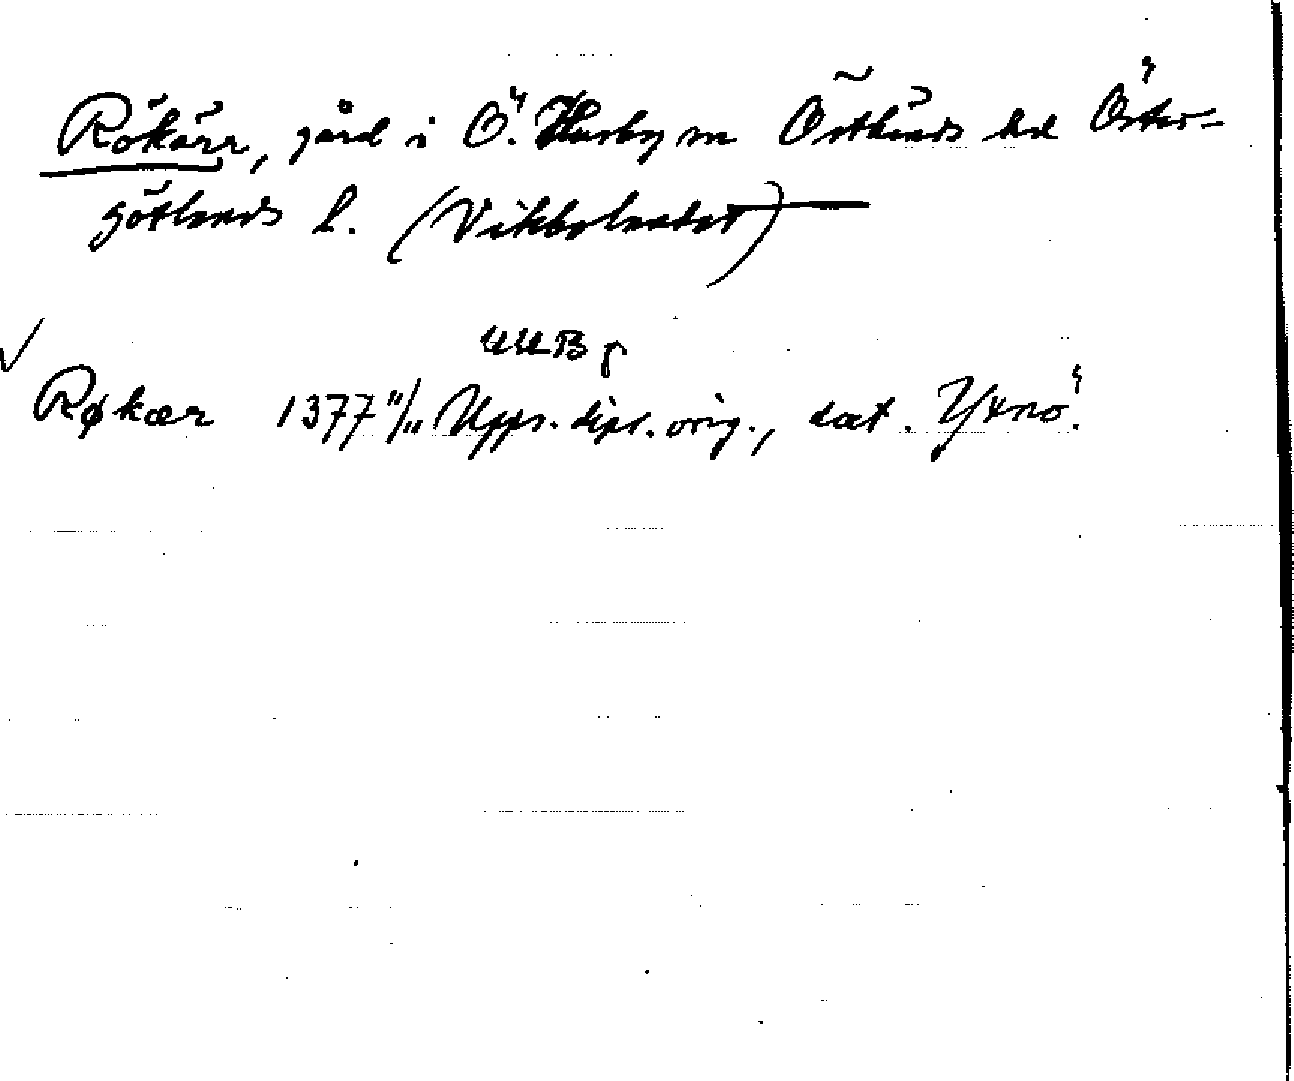 Rökärr, gård i Ö. Husby sn Östkinds hd Öster-
götlands l. (Vikbolandet)
UUB
Røkær 1377 11/11 Upps. dipl. orig., dat. Yxnö.